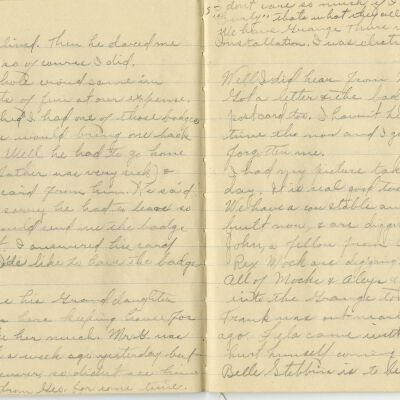 lined. Then he dared me
so of course I did.
whole crowd came in
of fun at our expense.
I had one of those badges
would bring one back
Well he had to go home
father was very sick) &
card from him. He said
sorry he had to leave so
would send me the badge
I answered his card
I'de like to have the badge
his Grand daughter
here keeping house for
her much. Mrs. G. was
week ago yesterday but
so didn't see
from Geo. for some time.
don't care so much if I
"curly" that's what they all
We have Grange Thurs
Installation. I was elected
Well I did hear from
Got a letter & the badge
postcard too. I haven't
time the
forgotten me.
I had my picture taken
day. It is real good
We have a constable
built now, & are digging
John, a fellow from
Rey Mock are digging
All of Mocks & Aleys &
into the Grange
Frank was out
ago. Lyla came with
hurt himself coming
Belle Stebbins is to be